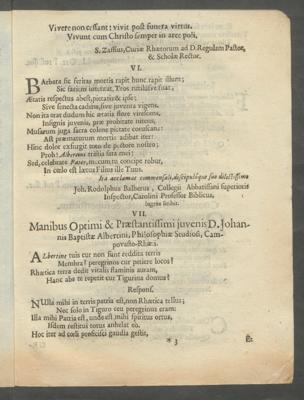 Vivere non cessant: vivit post funera virtus.
Vivunt cum Christo semper in arce poli,
S. Zaffius, Curiæ Rhætorum ad D. Regulam Pastor,
& Scholæ Rector.
VI.
BArbara sic feritas mortis rapit hunc rapit illum;
Sic fatum intentat, Tros rutulusve fuat,
Ætatis respectus abest, pietatis & ipse;
Sive senecta cadunt, sive juventa vigens.
Non ita erat dudum hic ætatis flore virescens,
Insignis juvenis, præ probitate nitens,
Musarum juga sacra colens pietate coruscans:
Ast præmaturum mortis adibat iter:
Hinc dolor exsurgit toto de pectore nostro;
Proh! Albertine tristia fata mei:
Sed, celebrate Pater, mœntem concipe robur,
In cœlo est lætus Filius ille Tuus.
Ita acclamat commensali, discipuloque suo dilectissimo
Joh. Rodolphus Balberus, Collegii Abbatissani superioris
Inspector, Carolini Professor Biblicus.
lugens scribit.
VII.
Manibus Optimi & Præstantissimi juvenis D. Johannis
Baptistæ Albertini, Philosophiæ Studiosi, Campovasto-Rhæti.
ALbertine tuis cur non sunt reddita terris
Membra? peregrinos cur petiere locos?
Rhætica terra dedit vitalis staminis auram,
Hanc abs te repetit cur Tigurina domus?
Respons.
NUlla mihi in terris patria est, non Rhætica tellus;
Nec solo in Tiguro ceu peregrinus eram:
Illa mihi Patria est, unde est mihi spiritus ortus,
Isdem restitui totus anhelat eò.
Hoc iter ad cœli proficisci gaudia gestit,
* 3